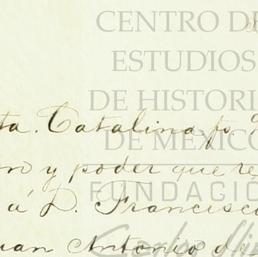 CENTRO DE
ESTUDIOS
DE HISTORI
DE MÉXICO
FUNDACIÓ
ta. Catalina fo
y poder que re
á D. Francisco
uan Antonio d